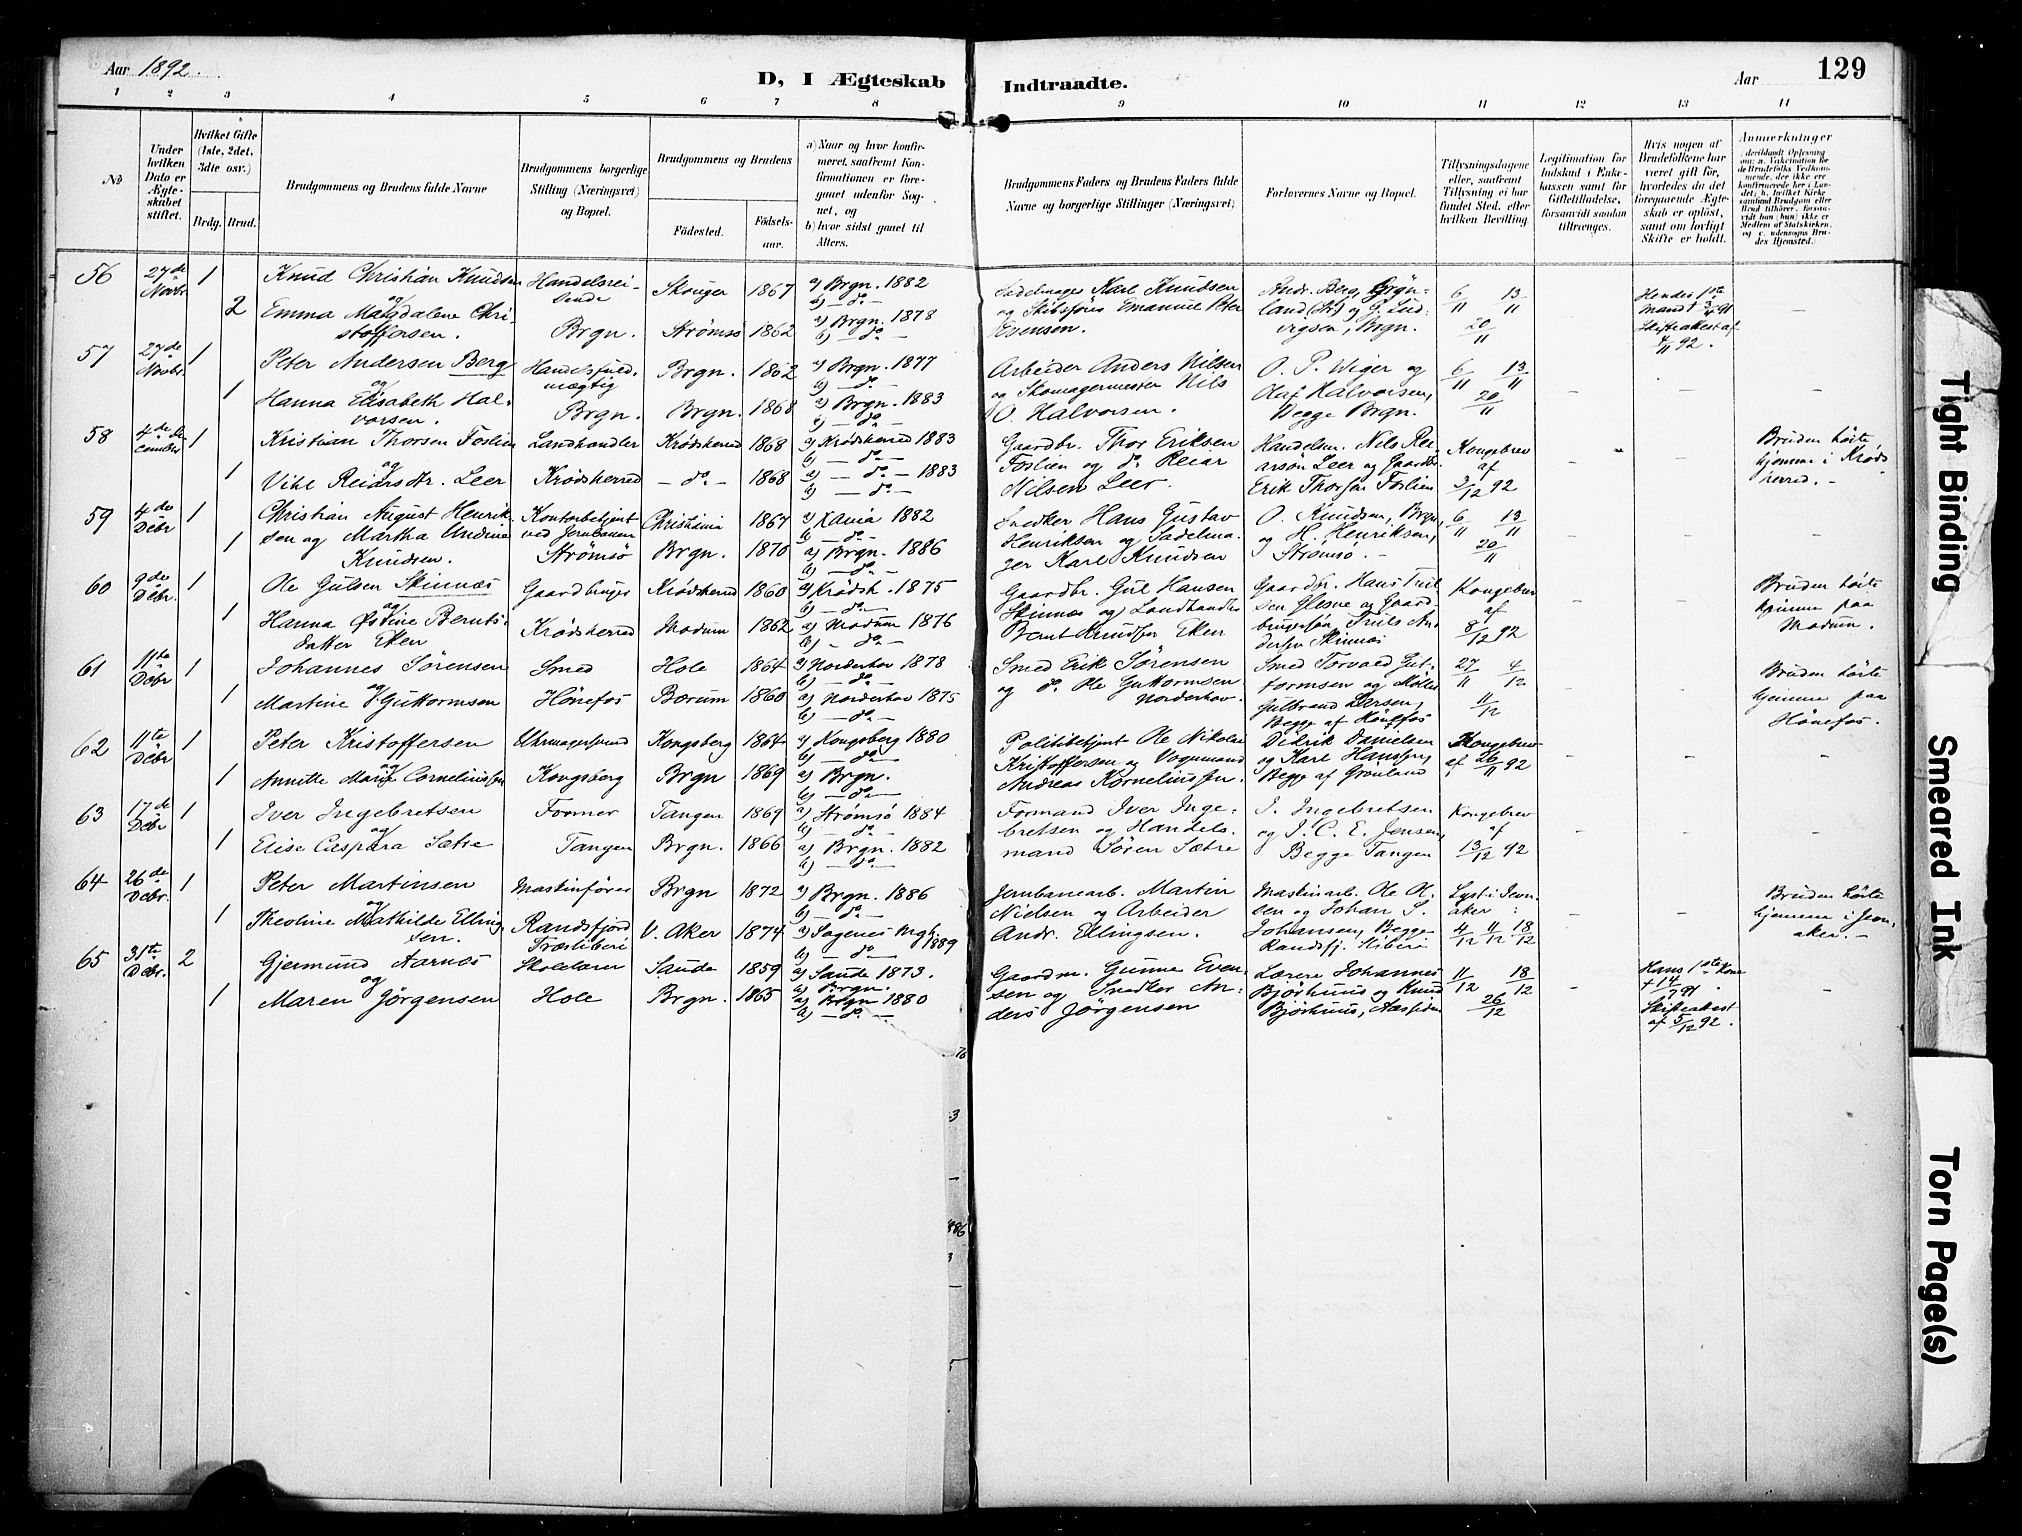 Aar 1892.
D, I Ægteskab Indtraadte.
Aar 129
1 2 3 4 5 6 7 8 9 10 11 12 13 14
No
Under hvilken Dato er Ægteskabet stiftet.
Hvilket Gifte (1ste, 2det, 3die osv.)
Brdg. Brud.
Brudgommens og Brudens fulde Navne
Brudgommens borgerlige Stilling (Næringsvei) og Bopæl.
Brudgommens og Brudens
Fødested. Fødselsaar.
a) Naar og hvor konfirmeret, saafremt Konfirmationen er foregaaet udenfor Sognet, og
b) hvor sidst gaaet til Alters.
Brudgommens Faders og Brudens Faders fulde Navne og borgerlige Stillinger (Næringsvei)
Forlovernes Navne og Bopæl.
Tillysningsdagene eller, saafremt Tillysning ei har fundet Sted, efter hvilken Bevilling.
Legitimation for Indskud i Enkekassen samt for Giftetilladelse, forsaavidt saadan tiltrænges.
Hvis nogen af Brudefolkene har været gift før, hvorledes da det foregaaende Ægteskab er opløst, samt om lovligt Skifte er holdt.
Anmerkninger
56 27de Novbr. 1 Knud Christian Knudsen Handelsreisende Skouger 1867 a) Brgn. 1882 b) — do — Sadelmager Karl Knudsen Andr. Berg, Grøn- 6/11 13/11 Hendes 1ste
2 og Emma Magdalene Christoffersen. Brgn. Strømsø 1862 a) Brgn. 1878 b) — do — og Skibsfører Emanuel Peter Evensen. land (St) og G. Ludvigsen, Brgn. 20/11 Mand † 3/4 91 Skifteattest af 4/11 92. —
57 27de Novbr. 1 Peter Andersen Berg Handelsfuldmægtig Brgn. 1862 a) Brgn. 1877 b) — do — Arbeider Anders Nilsen O. P. Wiger og 6/11 13/11
1 og Hanna Elisabeth Halvorsen. Brgn. Brgn. 1868 a) Brgn. 1883 b) — do — og Skomagermester Nils O. Halvorsen. Olaf Halvorsen, Begge Brgn. 20/11 — — —
58 4de December 1 Kristian Thorsen Foslien Landhandler Krødsherred 1868 a) Krødsherred 1883 b) — do — Gaardbr. Thor Eriksen Handelsm. Nils Rei- Kongebrev Bruden hørte
1 og Vihl Reiarsdtr. Leer Krødsherred — do — 1868 a) — do — 1883 b) — do — Foslien og do Reiar Nilsen Leer. arsøn Leer og Gaardbr. Erik Thorsen Foslien af 3/12 92 — — hjemme i Krødsherred. —
59 4de Debr 1 Christian August Henrik- Kontorbetjent Christiania 1867 a) Xania 1882 b) — do — Snedker Hans Gustav O. Knudsen, Brgn, 6/11 13/11
1 sen og Martha Undine Knudsen. ved Jernbanen Strømsø Brgn. 1870 a) Brgn. 1886 b) — do — Henriksen og Sadelmager Karl Knudsen og H. Henriksen, Strømsø. — 20/11 — — —
60 9de Debr. 1 Ole Gulsen Skinnæs Gaardbruger Krødsherred 1860 a) Krødsh. 1875 b) — do — Gaardbr. Gul Hansen Gaardbr. Hans Trulsen Glesne og Gaard- Kongebrev Bruden hørte
1 og Hanna Østine Berntsdatter Eken Krødsherred Modum 1862 a) Modum 1876 b) — do — Skinnæs og Landhandler Bernt Knudsen Eken brugersøn Truls Andersen Skinnæs af 8/12 92 — — hjemme paa Modum.
61 11te Debr 1 Johannes Sørensen Smed Hole 1864 a) Norderhov 1878 b) — do — Smed Erik Sørensen Smed Torvald Gut- 27/11 4/12 Bruden hørte
1 og Martine Guttormsen Hønefos Bærum 1860 a) Norderhov 1875 b) — do — og do Ole Guttormsen Norderhov. tormsen og Møller Gulbrand Iversen, Begge af Hønefos 11/12 — — hjemme paa Hønefos.
62 11te Debr 1 Peter Kristoffersen Uhrmagersvend Kongsberg 1864 a) Kongsberg 1880 b) — do — Politibetjent Ole Nikolai Didrik Danielsen Kongebrev
1 og Annette Marie Corneliussen Kongsberg Brgn 1869 a) Brgn. b) — do — Kristoffersen og Vognmand Andreas Korneliussen. og Karl Hansen, Begge af Grønland af 26/11 92 — — —
63 17de Debr 1 Iver Ingebretsen Former Tangen 1869 a) Strømsø 1884 b) — do — Formand Iver Inge- I. Ingebretsen Kongebrev
1 og Elise Caspara Sætre Tangen Brgn. 1866 a) Brgn. 1882 b) — do — bretsen og Handelsmand Søren Sætre og J. C. E. Jensen, Begge Tangen af 13/12 92 — — —
64 26de Debr. 1 Peter Martinsen Maskinfører Brgn 1872 a) Brgn. 1886 b) — do — Jernbanearb. Martin Maskinarb. Ole Ol- Lyst i Jevn- Bruden hørte
1 og Theoline Mathilde Ellingsen. Randsfjord Træsliberi V. Aker 1874 a) Sagenes Mgh. 1889 b) — do — Nielsen og Arbeider Andr. Ellingsen. sen og Johan S. Johansen, Begge Randsfj. Sliberi aker: 4/12 11/12 18/12 — — hjemme i Jevnaker. —
65 31te Debr. 2 Gjermund Aarnæs Skolelærer Saude 1859 a) Saude 1873. b) Brgn. Gaardm. Gunne Even- Lærere Johannes 11/12 18/12 Hans 1ste Kone
1 og Maren Jørgensen Hole Brgn. 1865 a) Brgn 1880 b) — do — sen og Snedker Anders Jørgensen Bjørhuus og Knud Bjørhuus, Aassiden 26/12 — † 14/7 91. Skifteattest af 5/12 92. —
Tight Binding
Smeared Ink
Torn Page(s)